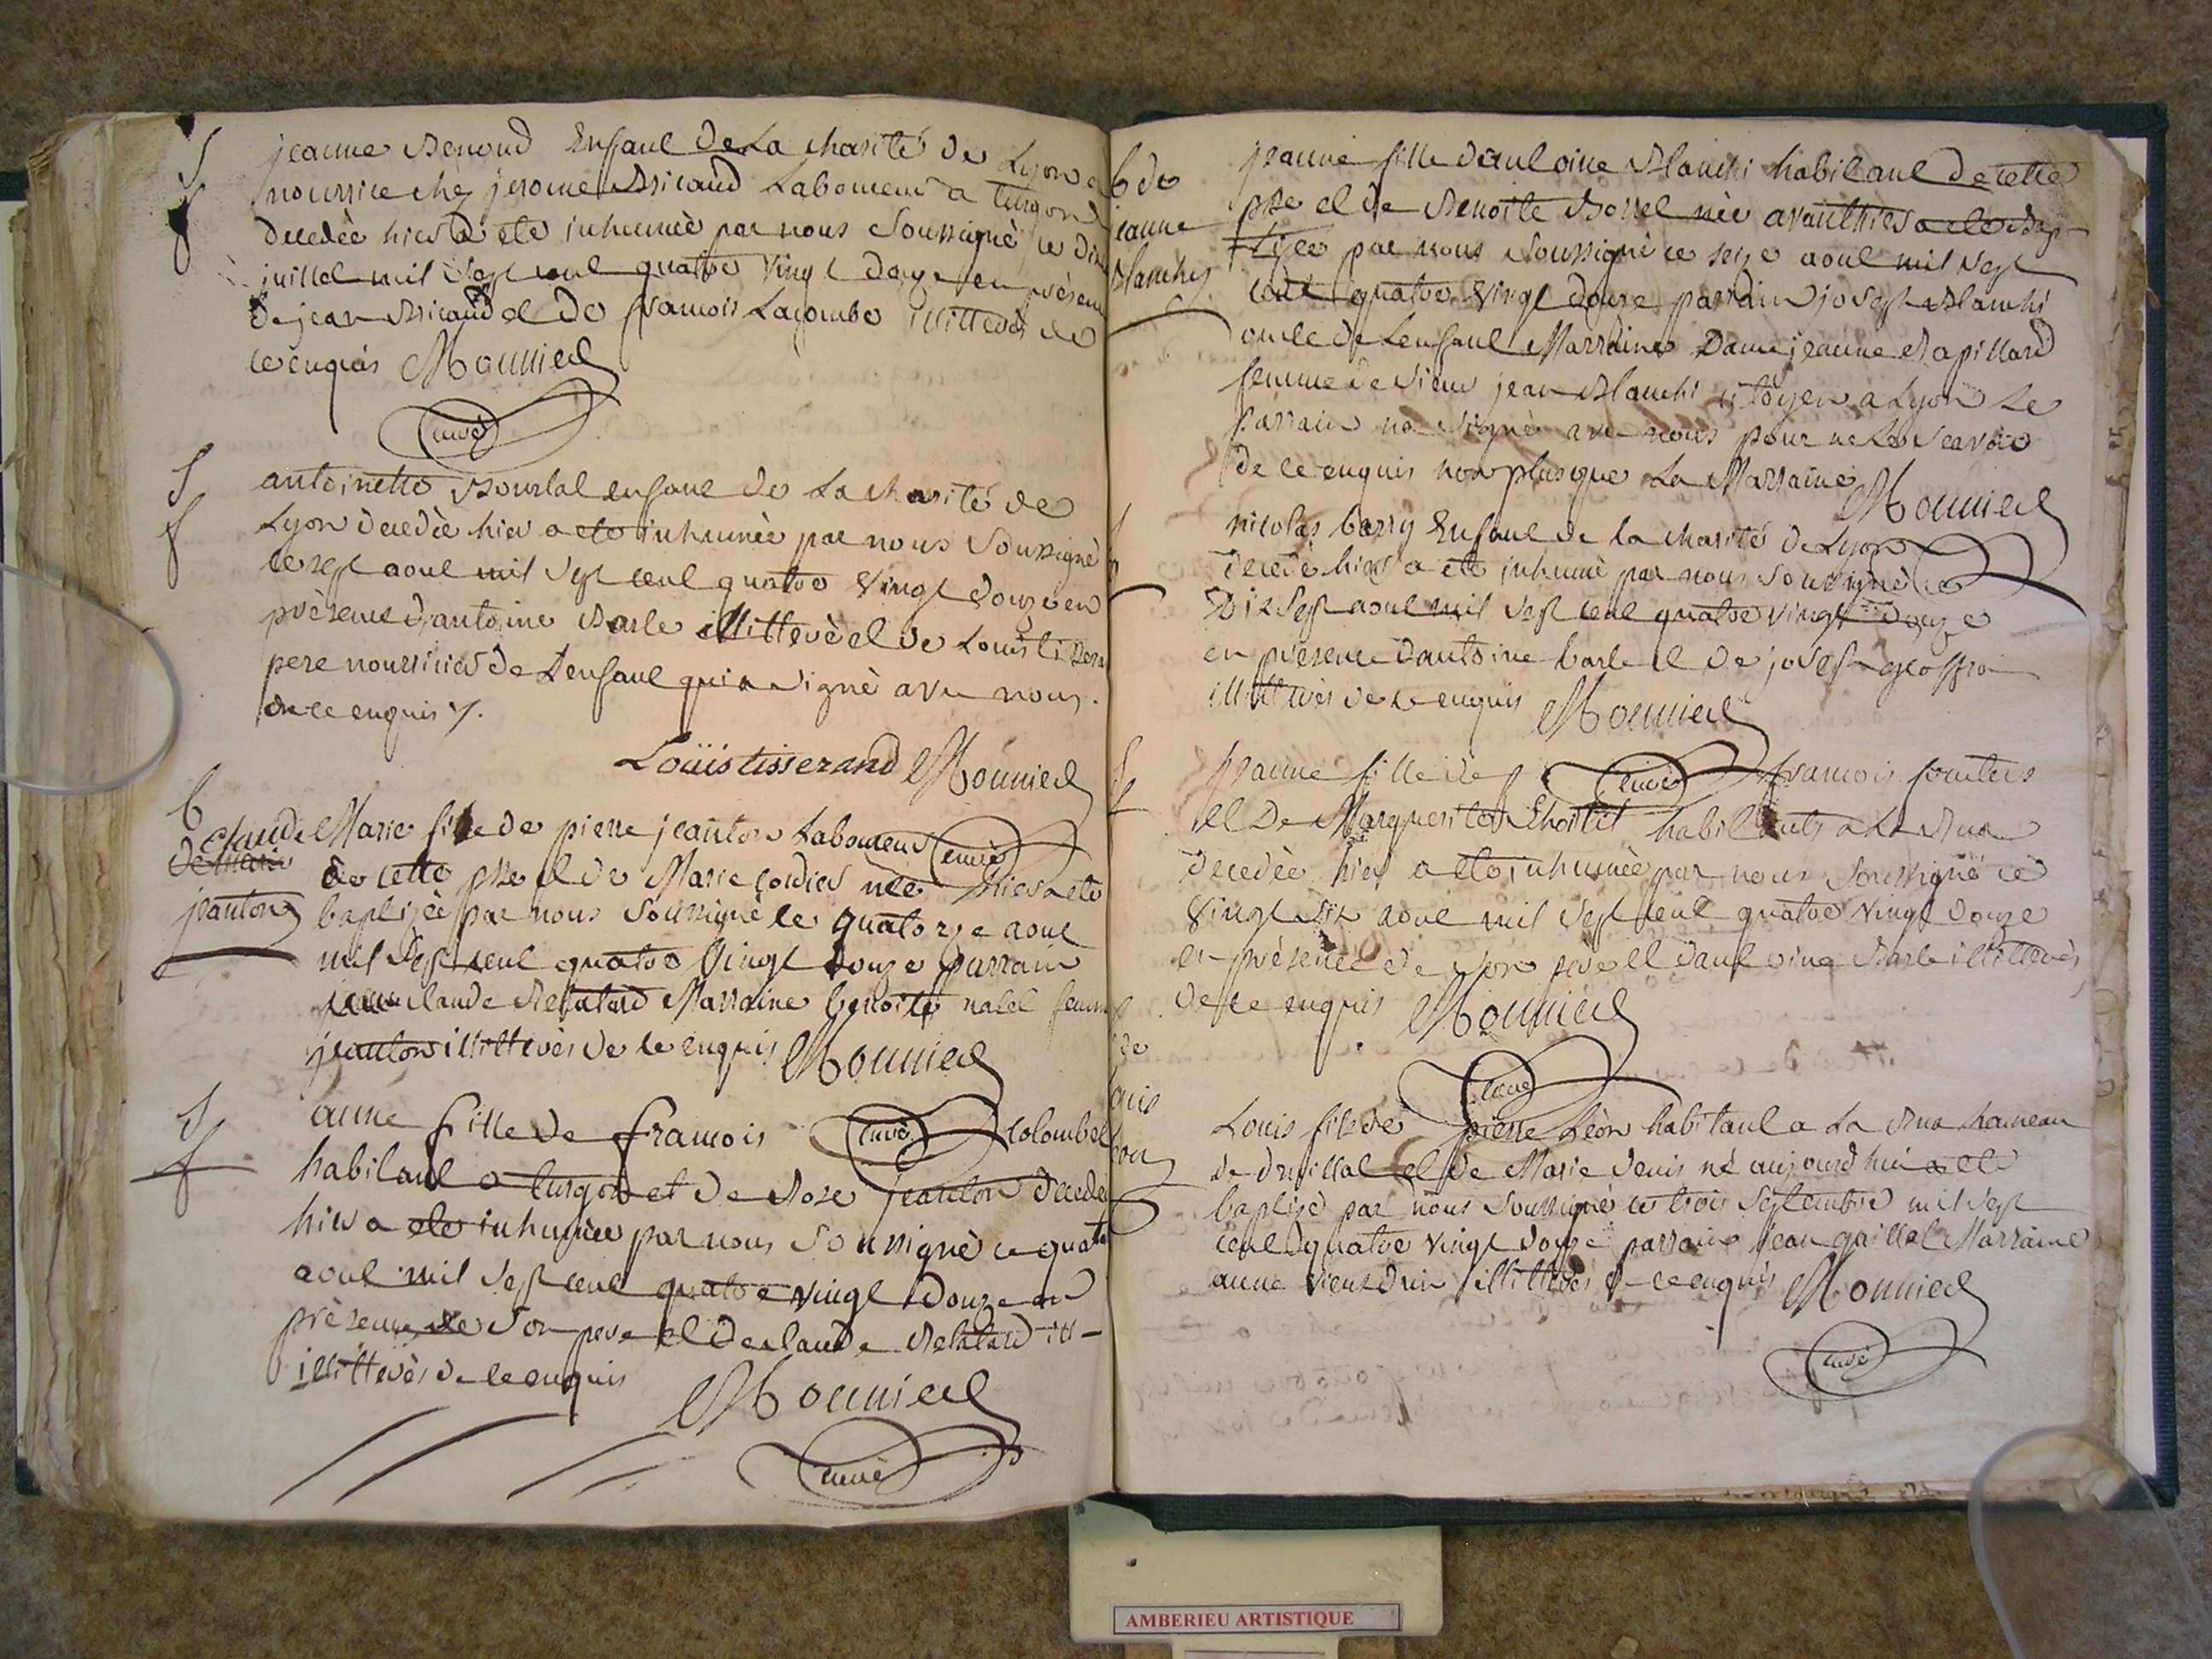 S
f
jeanne Benoud Enfant de La charité de Lyon
nourrice chéz jerome Bricaud Laboureur a turgon
decedèe hier a ete inhumèe par nous Soussignè ce dix
juillet mil Sept cent quatre vingt douze en présence
de jean Bricaud et de francois Lacombe illittevés de
ce enquis Mounier
curé
S
f
antoinette Bourlat enfant de La charité de
Lyon decedèe hier a ete inhumèe par nous Soussignè
ce sept aout mil Sept cent quatre vingt douze en
présence d'antoine Barle illittevé et de Louis tissera
pere nourricier de L'enfant qui a signè avec nous.
de ce enquis
Loüis tisserand Mounier
curé
b
de marie
jeanton
claude Marie fille de pierre jeanton Laboureur
de cette psse et de Marie cordier née hier a ete
baptizèe par nous Soussignè le quatorze aout
mil Sept cent quatre vingt douze parrain
claude Marraine benoite femm
jeanton illittevés de ce enquis Mounier
curé
S
f
anne fille de francois colombet
habitant a turgon et de Rose jeanton decedee
hier a ete inhumèe par nous Soussignè ce quato
aout mil Sept cent quatre vingt douze en
présence de Son pere et de claude
illittevés de ce enquis
Mounier
curé
b de
jeanne
Blanchy
jeanne fille d'antoine Blanchi habitant de cette
psse et de Benoite Borrel nèe avanthier a ete bap-
tizèe par nous Soussignè ce seize aout mil Sept
cent quatre vingt douze parrain joseph Blanchi
oncle de L'enfant Marraine Dame jeanne Rapillard
femme de Sieur jean Blanchi citoyen a Lyon Le
parrain na Signè avec nous pour ne Le Scavoir
de ce enquis non plus que La Marraine
Mounier
nicolas barry Enfant de la charité de Lyon
decedè hier a ete inhumè par nous Soussignè ce
Dix Sept aout mil Sept cent quatre vingt douze
en présence d'antoine barle et de joseph
illittevés de ce enquis Mounier
curé
jeanne fille de francois
et De Marguerite habitants a La Rua
decedèe hier a ete inhumèe par nous Soussignè ce
vingt Six aout mil Sept cent quatre vingt douze
en présence de Son pere et d'antoine Barle illittevés
de ce enquis Mounier
curé
de
Louis fils de pierre Léon habitant a La Rua hameau
de druillat et de Marie denis né aujourd'hui a ete
baptisé par nous Soussignè ce trois Septembre mil Sept
cent quatre vingt douze parrain jean Marraine
anne illittevés de ce enquis Mounier
curé
AMBERIEU ARTISTIQUE